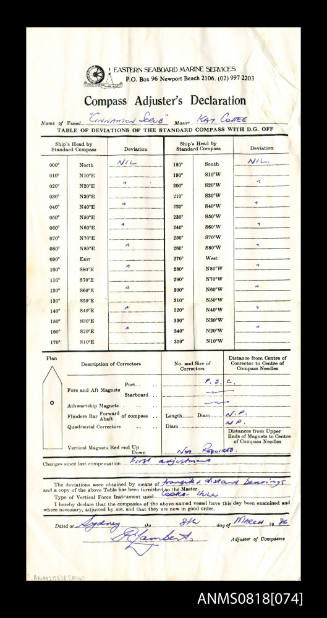 EASTERN SEABOARD MARINE SERVICES
P.O. Box 96 Newport Beach 2106. (02) 997 2203
Compass Adjuster's Declaration
Name of Vessel "CINNAMON SCRUB" Master KAY COTTEE
TABLE OF DEVIATIONS OF THE STANDARD COMPASS WITH D.G. OFF
Ship's Head by Standard Compass Deviation Ship's Head by Standard Compass Deviation
000° North NIL 180° South NIL.
010° N10°E 190° S10°W
020° N20°E " 200° S20°W "
030° N30°E 210° S30°W
040° N40°E " 220° S40°W "
050° N50°E 230° S50°W
060° N60°E " 240° S60°W "
070° N70°E 250° S70°W
080° N80°E " 260° S80°W "
090° East 270° West
100° S80°E " 280° N80°W "
110° S70°E 290° N70°W
120° S60°E " 300° N60°W "
130° S50°E 310° N50°W
140° S40°E " 320° N40°W "
150° S30°E 330° N30°W
160° S20°E " 340° N20°W "
170° S10°E 350° N10°W
Plan Description of Correctors No. and Size of Correctors Distance from Centre of Corrector to Centre of Compass Needles
Fore and Aft Magnets Port
Starboard
Athwartship Magnets
Flinders Bar Forward Abaft of compass Length Diam N.P.
Quadrantal Correctors Diam N.P.
Distance from Upper Ends of Magnets to Centre of Compass Needles
Vertical Magnets Red end Up Down Not Required.
Changes since last compensation First adjustment
The deviations were obtained by means of transits & distant bearings
and a copy of the above Table has been furnished to the Master
Type of Vertical Force Instrument used
I hereby declare that the compasses of the above named vessel have this day been examined and
where necessary, adjusted by me, and that they are now in good order.
Dated at Sydney the 8th of March 19
Adjuster of Compasses
ANMS0818[074]